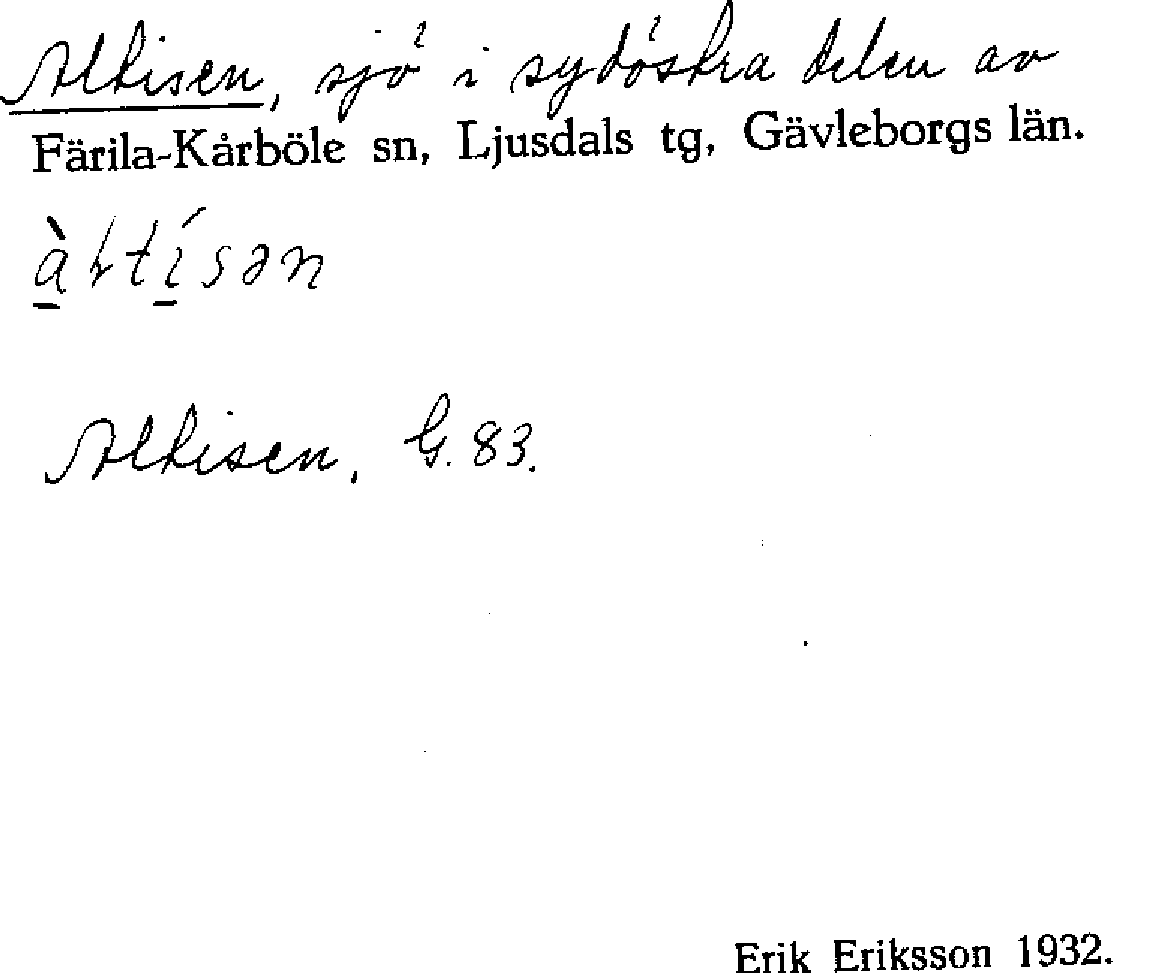 Altisen, sjö i sydöstra delen av
Färila-Kårböle sn, Ljusdals tg, Gävleborgs län.
Altisen, G. 83.
Erik Eriksson 1932.